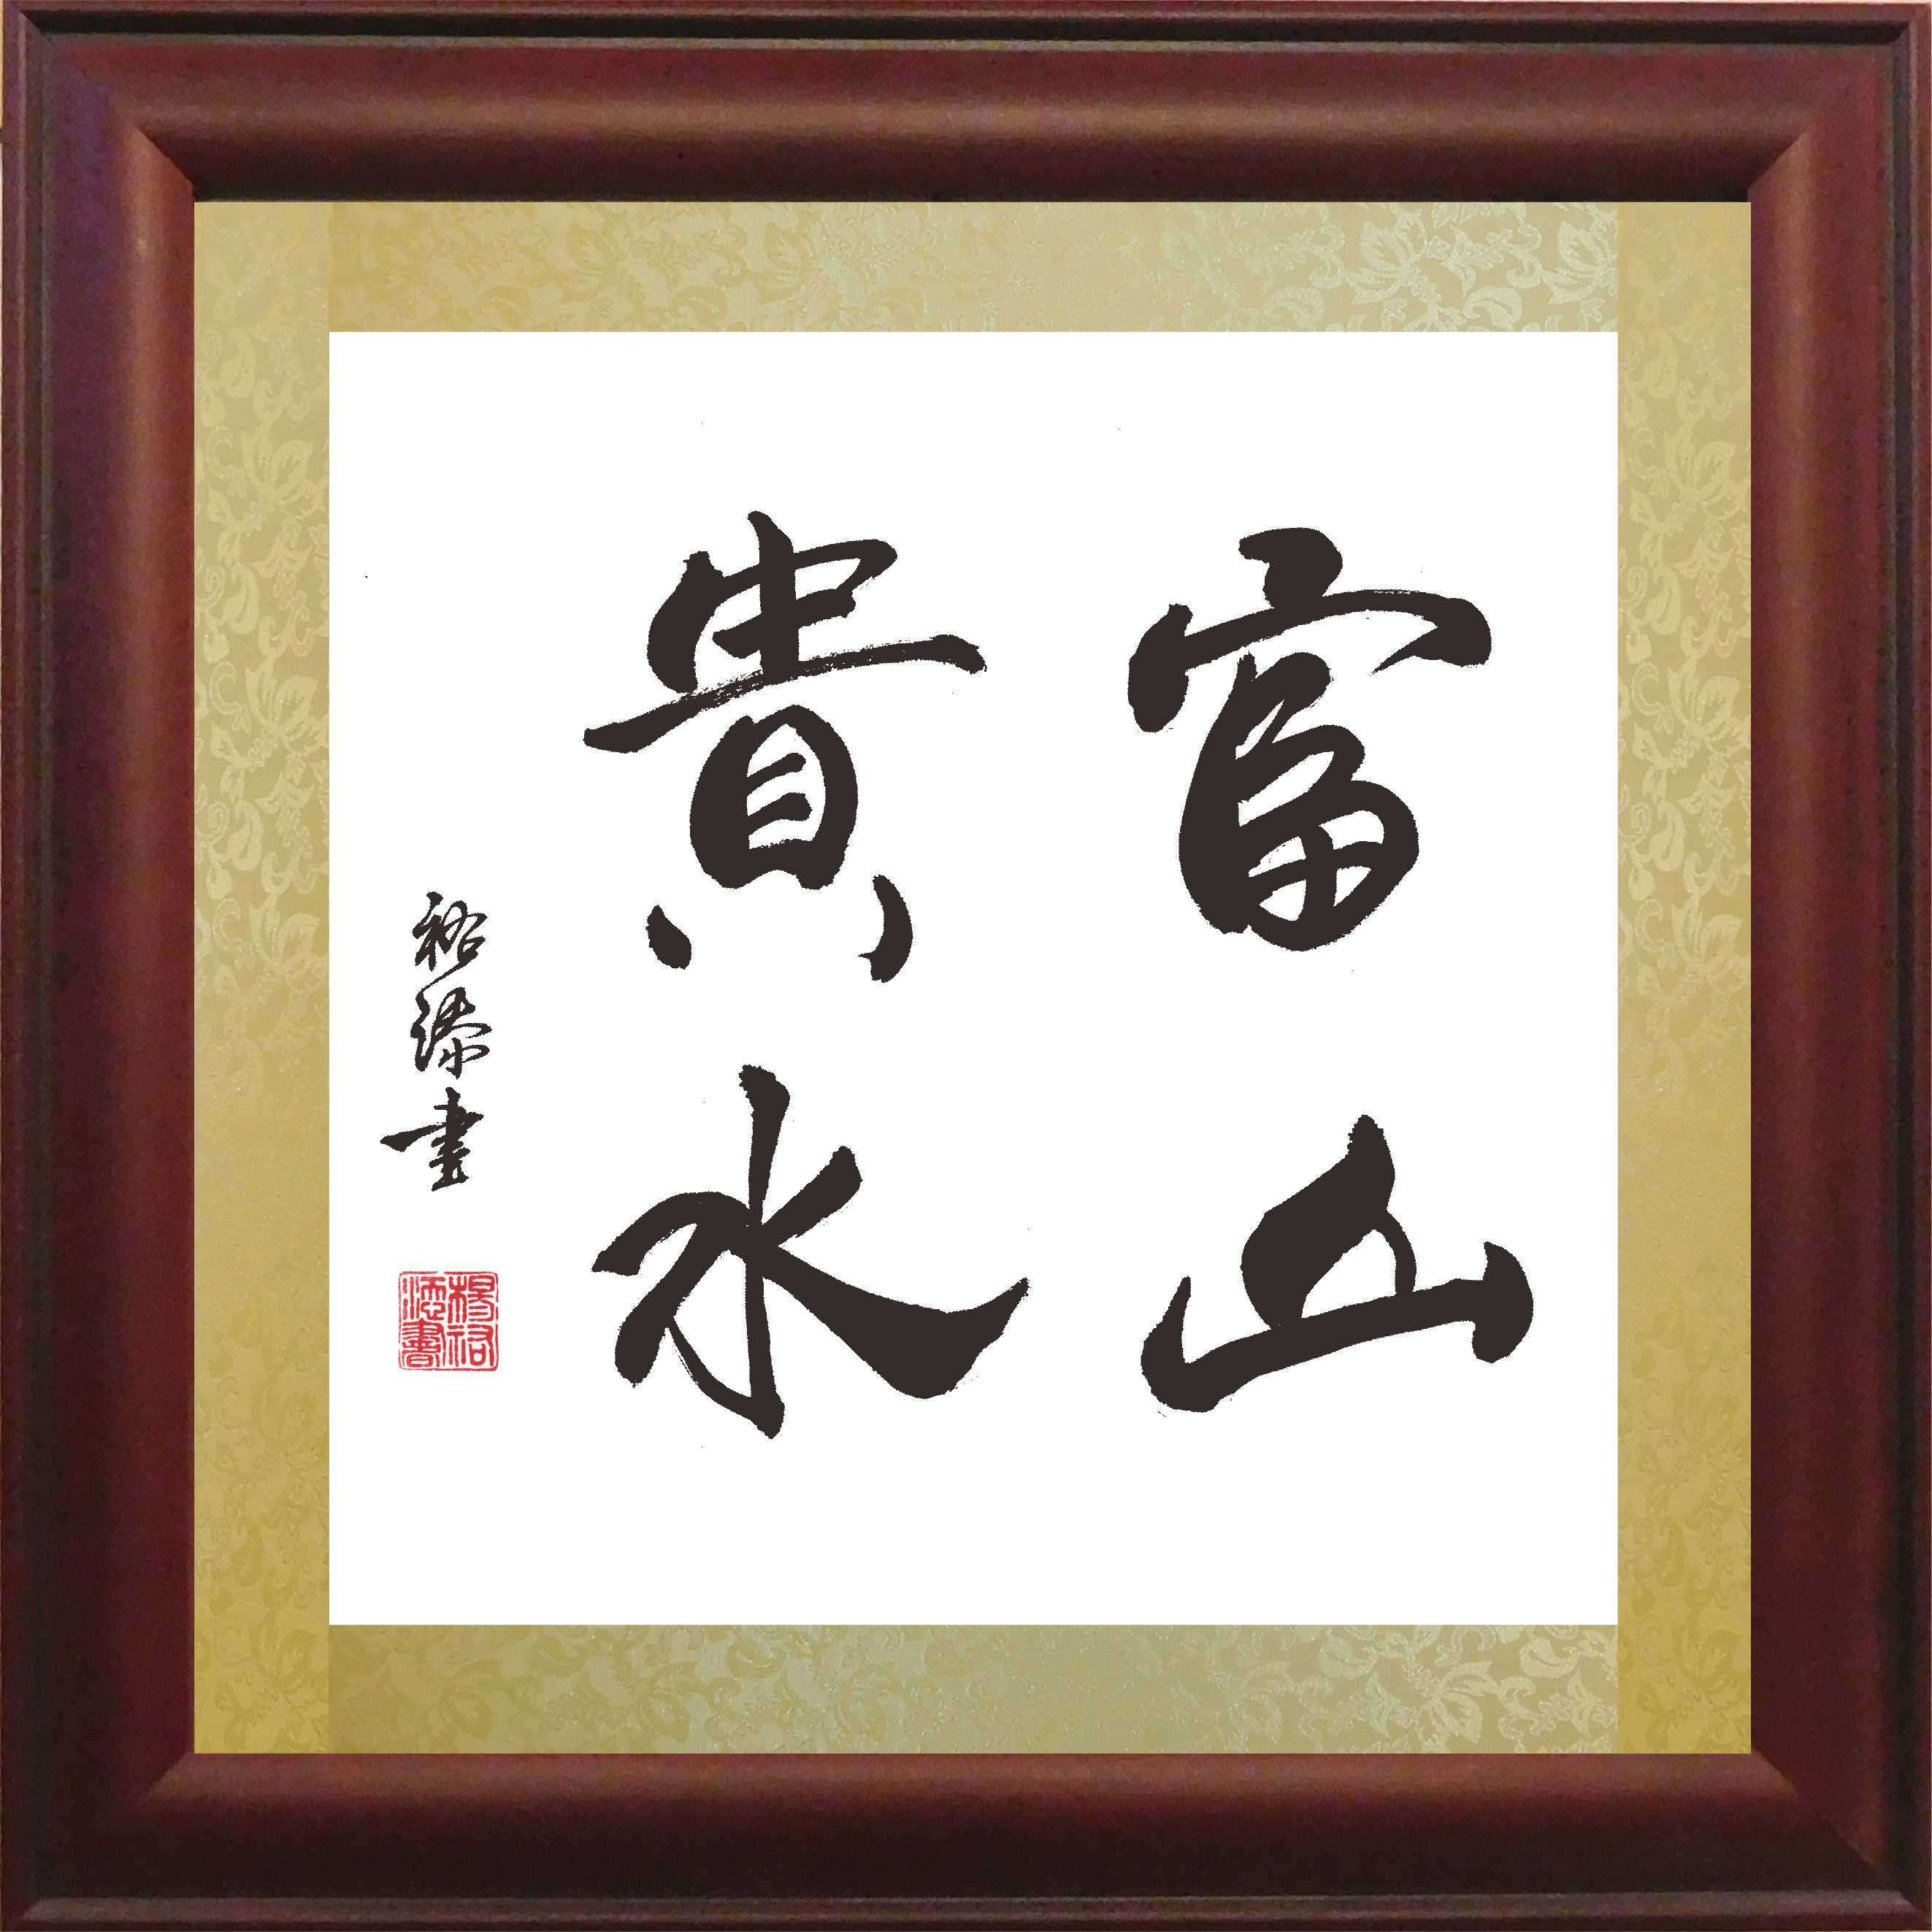 富山
貴水
裕添書
楊裕
添書